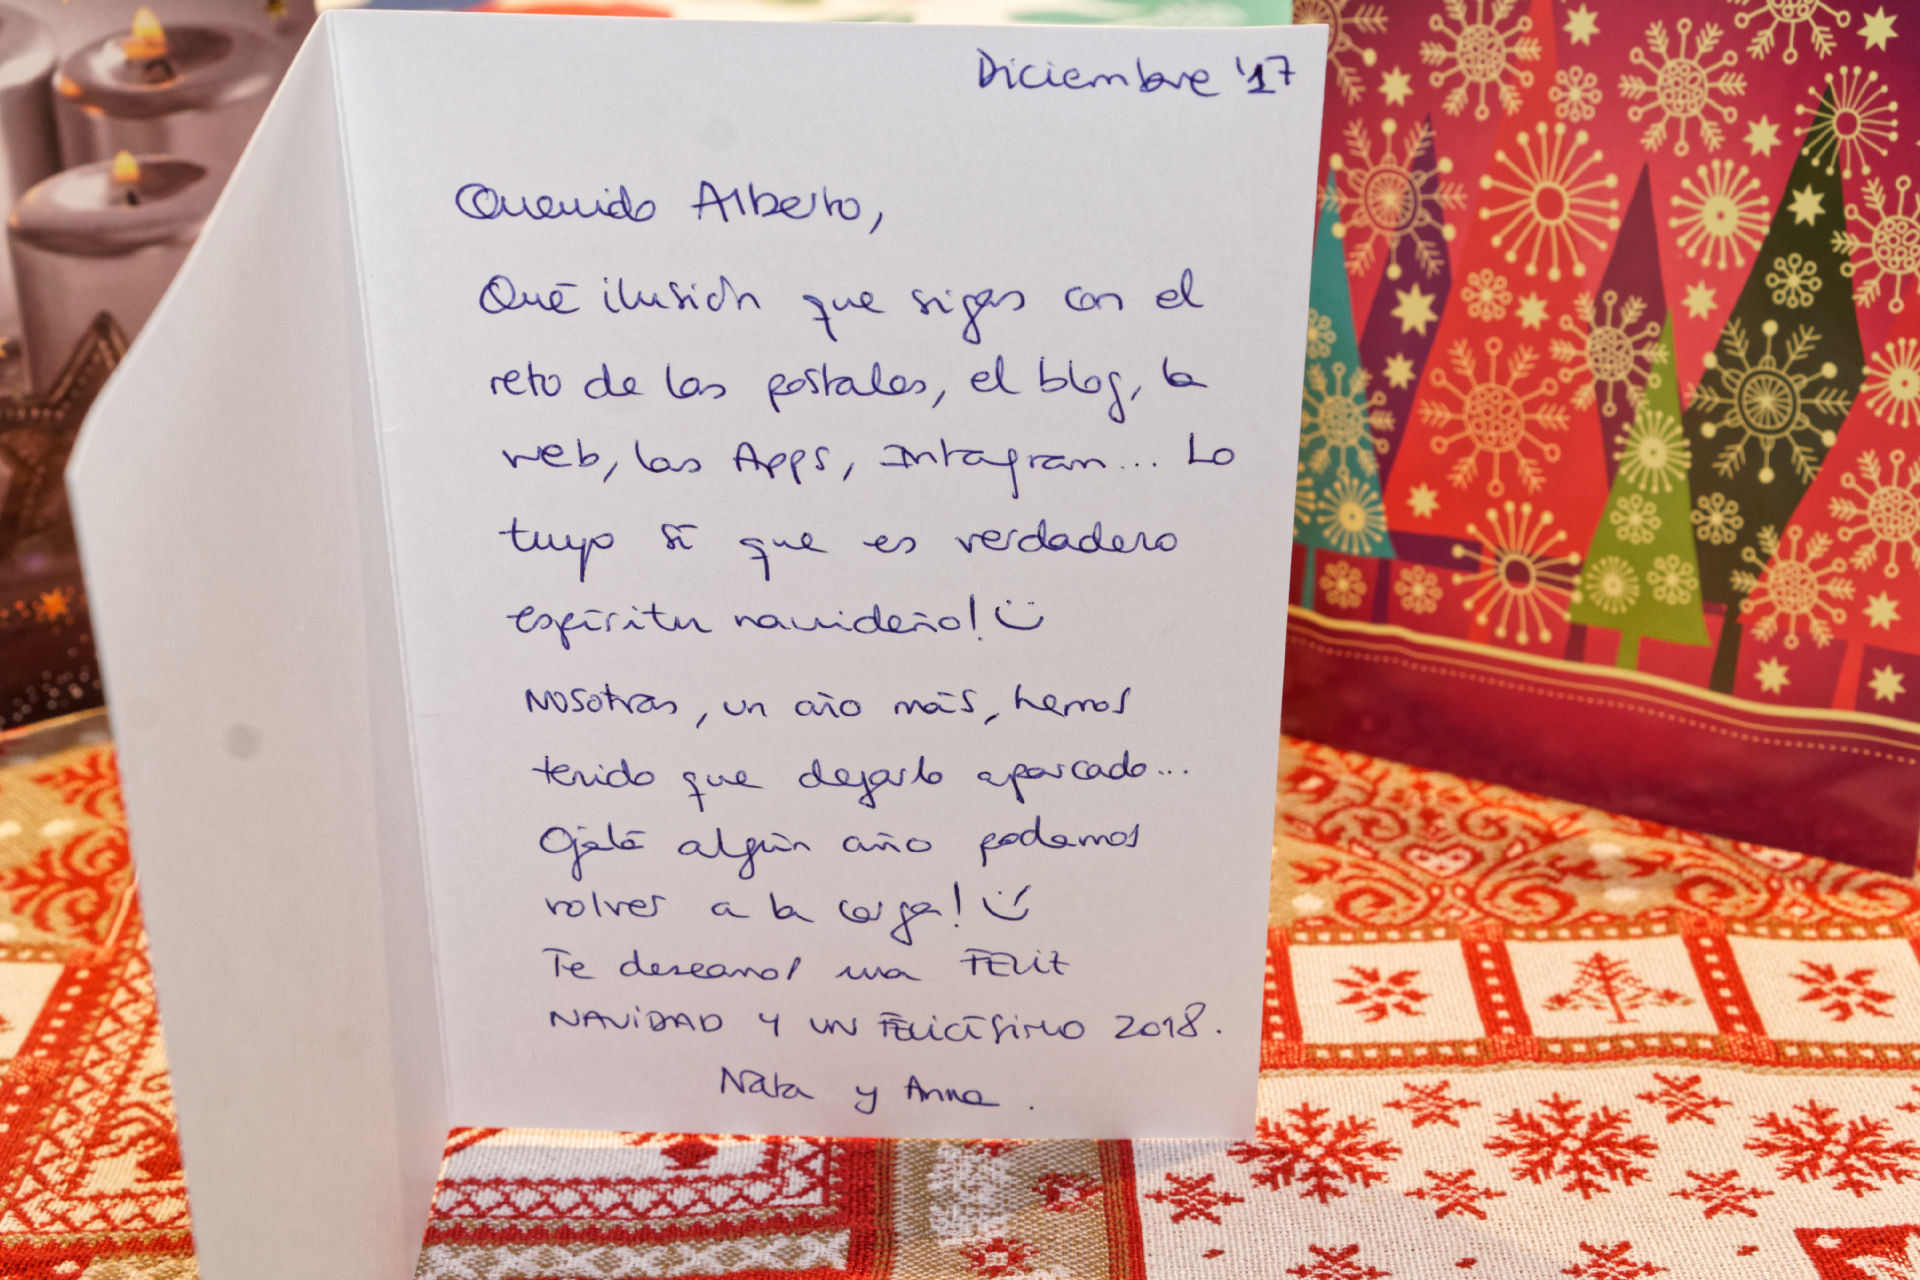 Diciembre '17
Querido Alberto,
Qué ilusión que sigas con el
reto de las postales, el blog, la
web, las Apps, Intagram... Lo
tuyo sí que es verdadero
espíritu navideño! :)
Nosotras, un año más, hemos
tenido que dejarlo aparcado...
Ojalá algún año podamos
volver a la carga! :)
Te deseamos una FELIZ
NAVIDAD Y UN FELICÍSIMO 2018.
Nata y Anna.